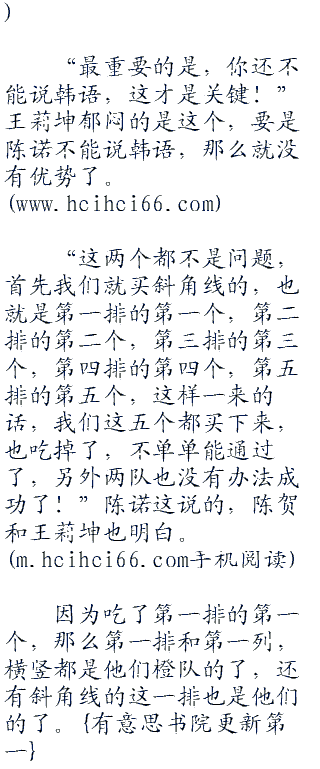 )
“最重要的是，你还不
能说韩语，这才是关键！”
王莉坤郁闷的是这个，要是
陈诺不能说韩语，那么就没
有优势了。
(www.hcihci66.com)
“这两个都不是问题，
首先我们就买斜角线的，也
就是第一排的第一个，第二
排的第二个，第三排的第三
个，第四排的第四个，第五
排的第五个，这样一来的
话，我们这五个都买下来，
也吃掉了，不单单能通过
了，另外两队也没有办法成
功了！”陈诺这说的，陈贺
和王莉坤也明白。
(m.hcihci66.com手机阅读)
因为吃了第一排的第一
个，那么第一排和第一列，
横竖都是他们橙队的了，还
有斜角线的这一排也是他们
的了。{有意思书院更新第
一}